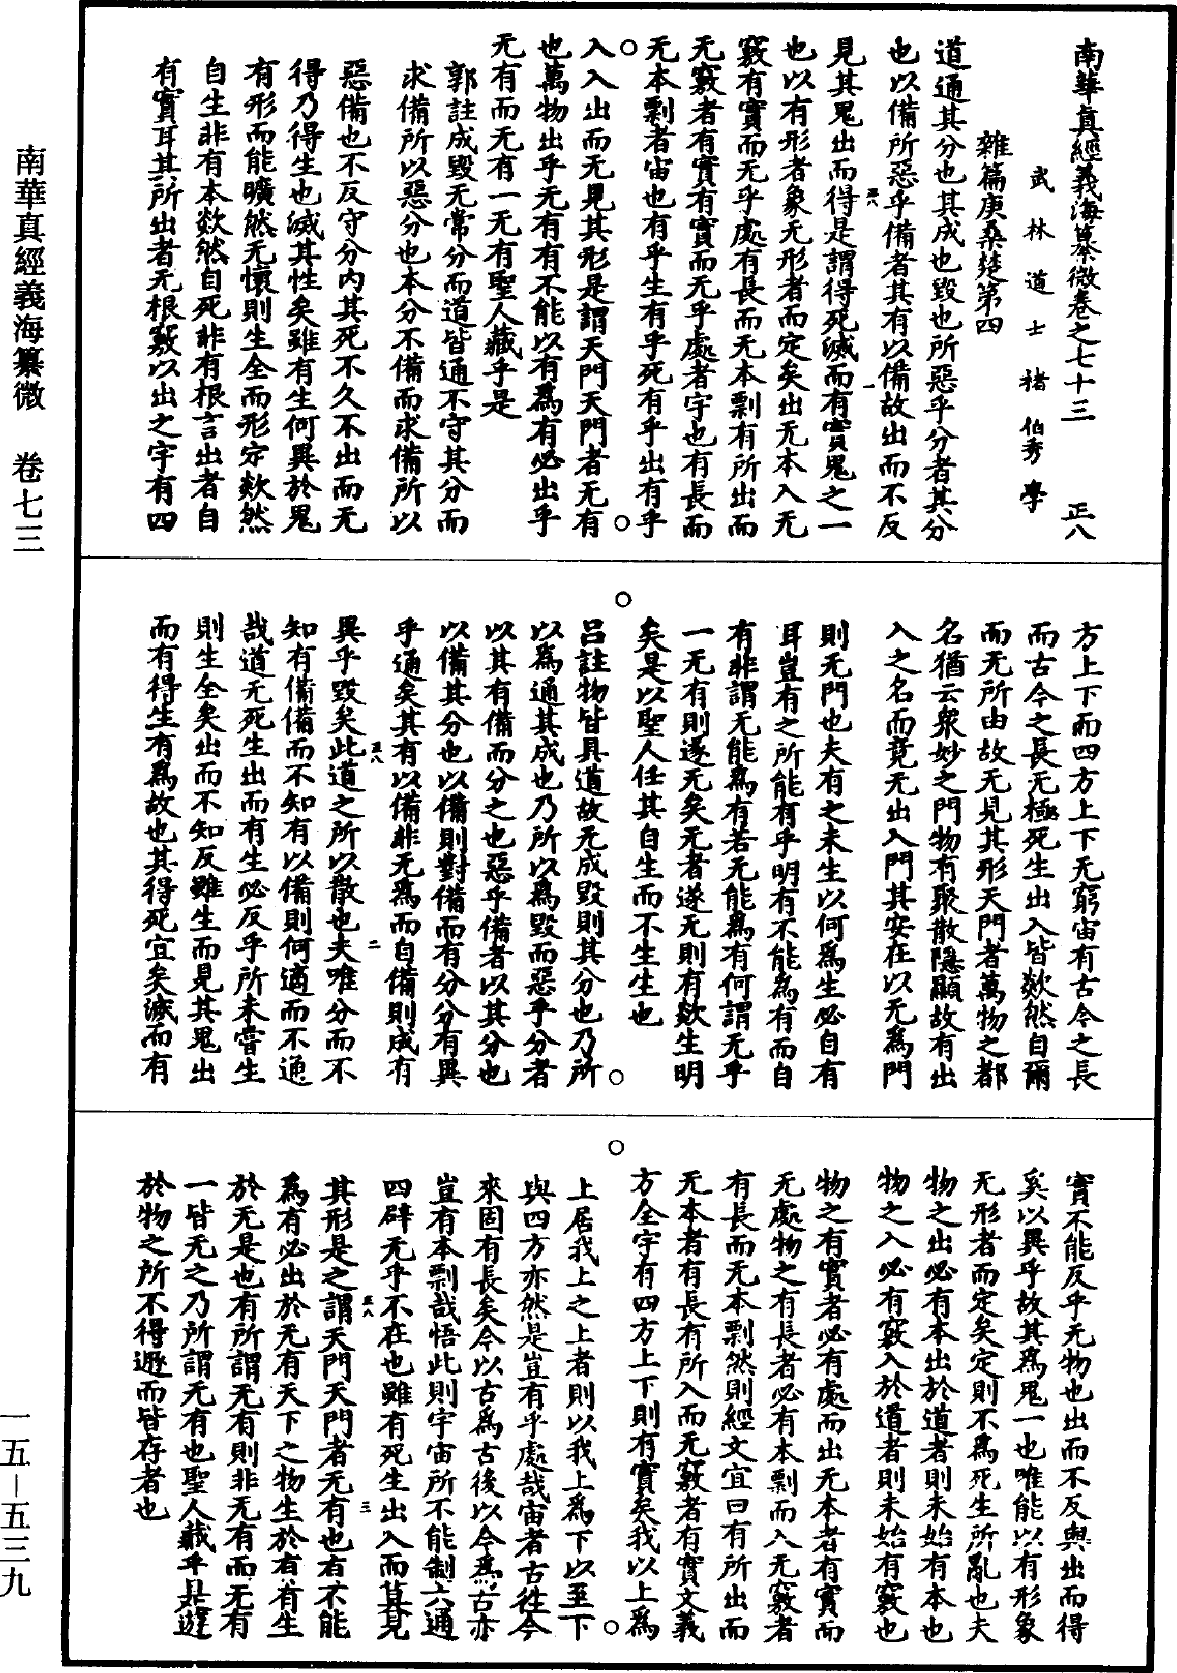 南華真經義海纂微卷之七十三　正八
武林道士褚伯秀學
雜篇庚桑楚第四
道通其分也其成也毀也所惡乎分者其分
也以備所惡乎備者其有以備故出而不反
見其鬼出而得是謂得死滅而有實鬼之一
也以有形者象无形者而定矣出无本入无
竅有實而无乎處有長而无本剽有所出而
无竅者有實有實而无乎處者宇也有長而
无本剽者宙也有乎生有乎死有乎出有乎
入入出而无見其形是謂天門天門者无有
也萬物出乎无有有不能以有為有必出乎
无有而无有一无有聖人藏乎是
郭註成毀无常分而道皆通不守其分而
求備所以惡分也本分不備而求備所以
惡備也不反守分內其死不久不出而无
得乃得生也滅其性矣雖有生何異於鬼
有形而能曠然无懷則生全而形定欻然
自生非有本欻然自死非有根言出者自
有實耳其所出者无根竅以出之宇有四
方上下而四方上下无窮宙有古今之長
而古今之長无極死生出入皆欻然自爾
而无所由故无見其形天門者萬物之都
名猶云衆妙之門物有聚散隱顯故有出
入之名而竟无出入門其安在以无為門
則无門也夫有之未生以何為生必自有
耳豈有之所能有乎明有不能為有而自
有非謂无能為有若无能為有何謂无乎
一无有則遂无矣无者遂无則有欻生明
矣是以聖人任其自生而不生生也
呂註物皆具道故无成毀則其分也乃所
以為通其成也乃所以為毀而惡乎分者
以其有備而分之也惡乎備者以其分也
以備其分也以備則對備而有分分有異
乎通矣其有以備非无為而自備則成有
異乎毀矣此道之所以散也夫唯分而不
知有備備而不知有以備則何適而不通
哉道无死生出而有生必反乎所未嘗生
則生全矣出而不知反雖生而見其鬼出
而有得生有為故也其得死宜矣滅而有
實不能反乎无物也出而不反與出而得
奚以異乎故其為鬼一也唯能以有形象
无形者而定矣定則不為死生所亂也夫
物之出必有本出於道者則未始有本也
物之入必有竅入於道者則未始有竅也
物之有實者必有處而出无本者有實而
无處物之有長者必有本剽而入无竅者
有長而无本剽然則經文宜曰有所出而
无本者有長有所入而无竅者有實文義
方全宇有四方上下則有實矣我以上為
上居我上之上者則以我上為下以至下
與四方亦然是豈有乎處哉宙者古徃今
來固有長矣今以古為古後以今為古亦
豈有本剽哉悟此則宇宙所不能制六通
四辟无乎不在也雖有死生出入而莫見
其形是之謂天門天門者无有也有不能
為有必出於无有天下之物生於有有生
於无是也有所謂无有則非无有而无有
一皆无之乃所謂无有也聖人藏乎是遊
於物之所不得遯而皆存者也
南華真經義海纂微　卷七三
一五—五三九